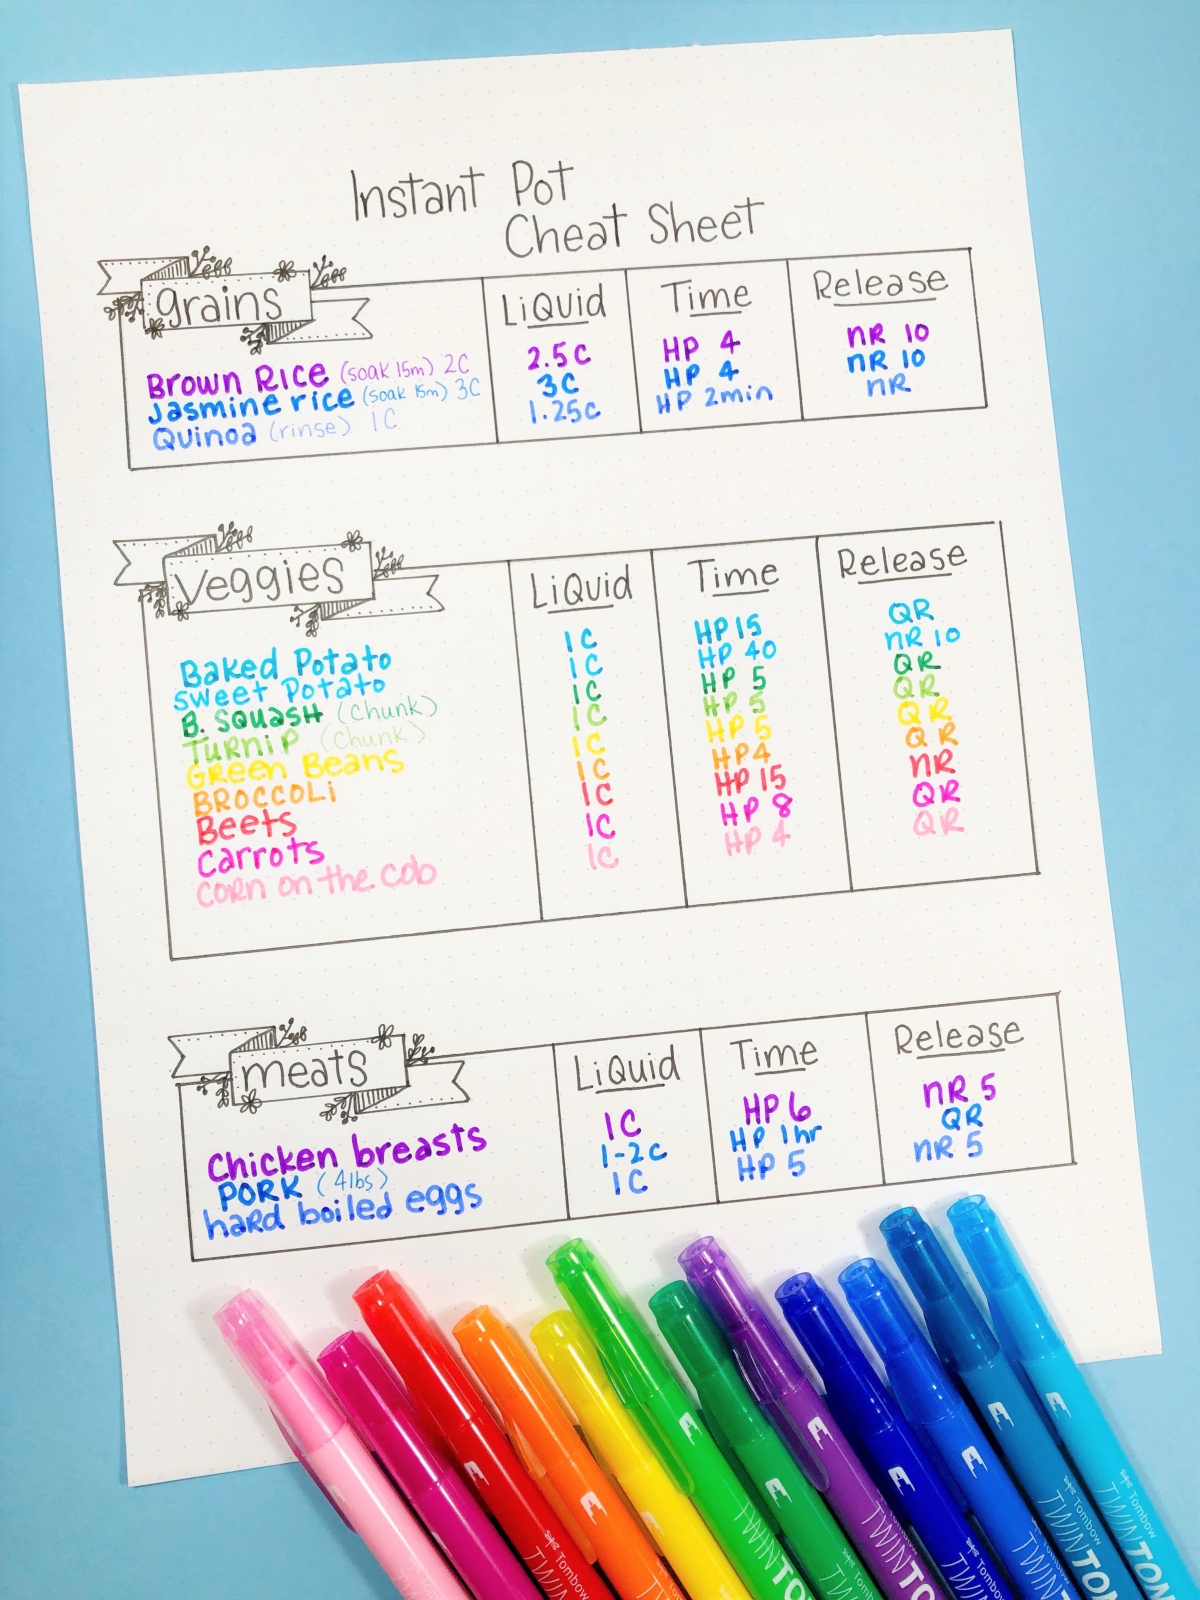 Instant Pot
Cheat Sheet
grains LiQuid Time Release
Brown Rice (soak 15m) 2C 2.5C HP 4 NR 10
Jasmine rice (soak 15m) 3C 3C HP 4 NR 10
Quinoa (rinse) 1C 1.25C HP 2min NR
veggies LiQuid Time Release
Baked Potato 1C HP 15 QR
Sweet Potato 1C HP 40 NR 10
B. Squash (chunk) 1C HP 5 QR
Turnip (chunk) 1C HP 5 QR
Green Beans 1C HP 5 QR
Broccoli 1C HP 4 QR
Beets 1C HP 15 NR
Carrots 1C HP 8 QR
Corn on the cob 1C HP 4 QR
meats LiQuid Time Release
Chicken breasts 1C HP 6 NR 5
Pork (4lbs) 1-2C HP 1hr QR
hard boiled eggs 1C HP 5 NR 5
Tombow
TWIN
TWIN
TWINTO
TWIN
TWINTO
TWIN
TWIN
Tombow
TWINTON
Tombow
TWINTON